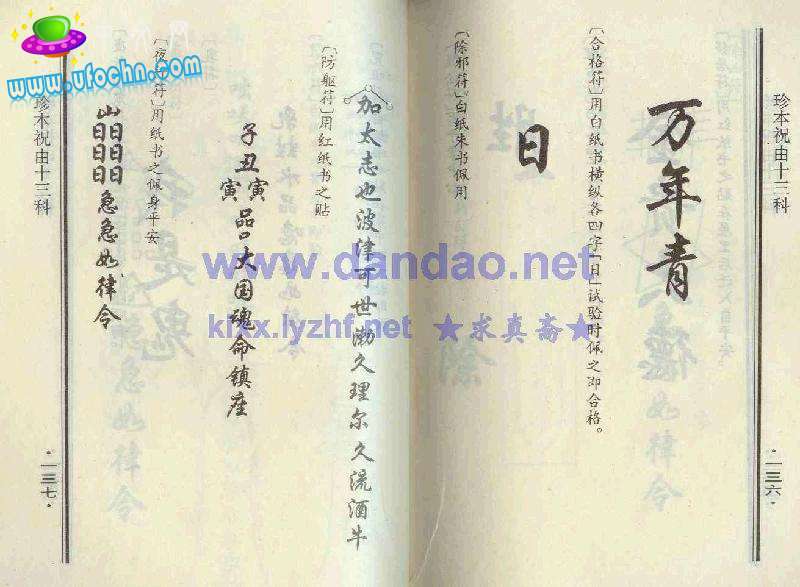 珍本祝由十三科
·一三六·
万年青
〔合格符〕用白纸书横纵各四字「日」试验时佩之即合格。
日
〔除邪符〕白纸朱书佩用
加太志也波津可世渤久理尔久流酒牛
〔防躯符〕用红纸书之贴
子丑寅
寅品口大国魂命鎮座
用纸书之佩身平安
山日日日日日日日急急如律令
珍本祝由十三科
·一三七·
www.ufochn.com
www.dandao.net
kixx.lyzhf.net ★求真斋★